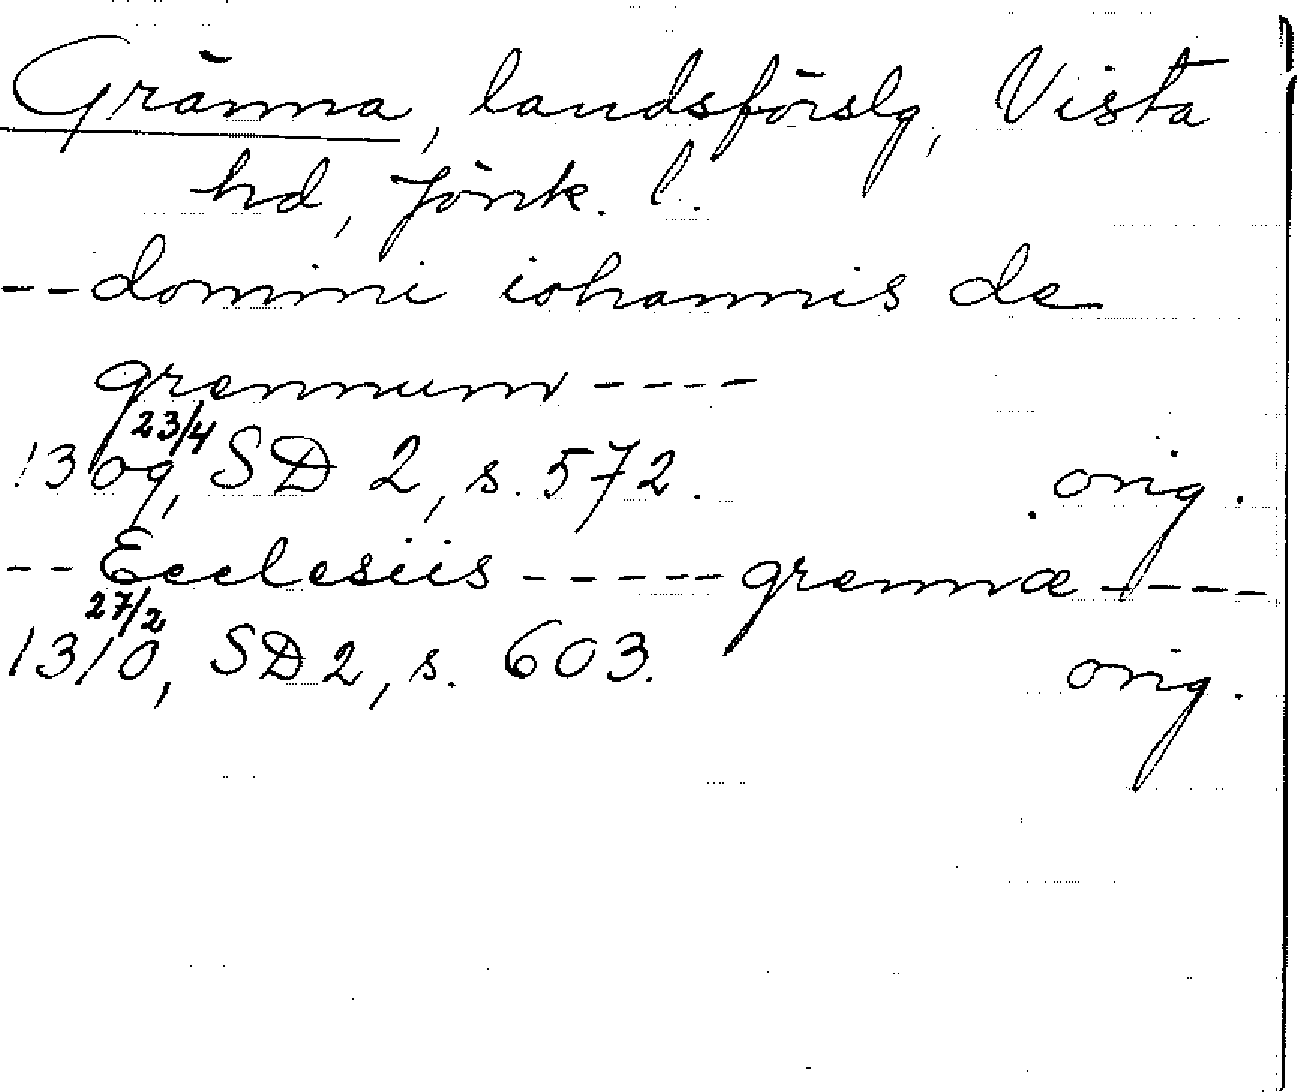 Gränna, landsförslg, Vista
hd, Jönk. l.
--domini iohannis de
grennum ----
1309 23/4, SD 2, s. 572. orig.
--Ecclesiis ----- grennæ ----
1310 27/2, SD 2, s. 603. orig.